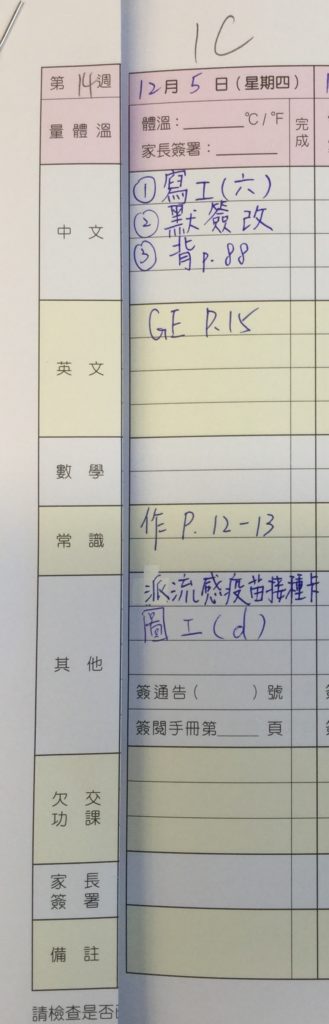 1C
第14週
12月5日(星期四)
量體溫
體溫:______°C/°F
家長簽署:______
完成
中文
①寫工(六)
②默簽改
③背p.88
英文
GE P.15
數學
常識
作P.12-13
其他
派流感疫苗接種卡
圖工(d)
簽通告( )號
簽閱手冊第____頁
欠交功課
家長簽署
備註
請檢查是否